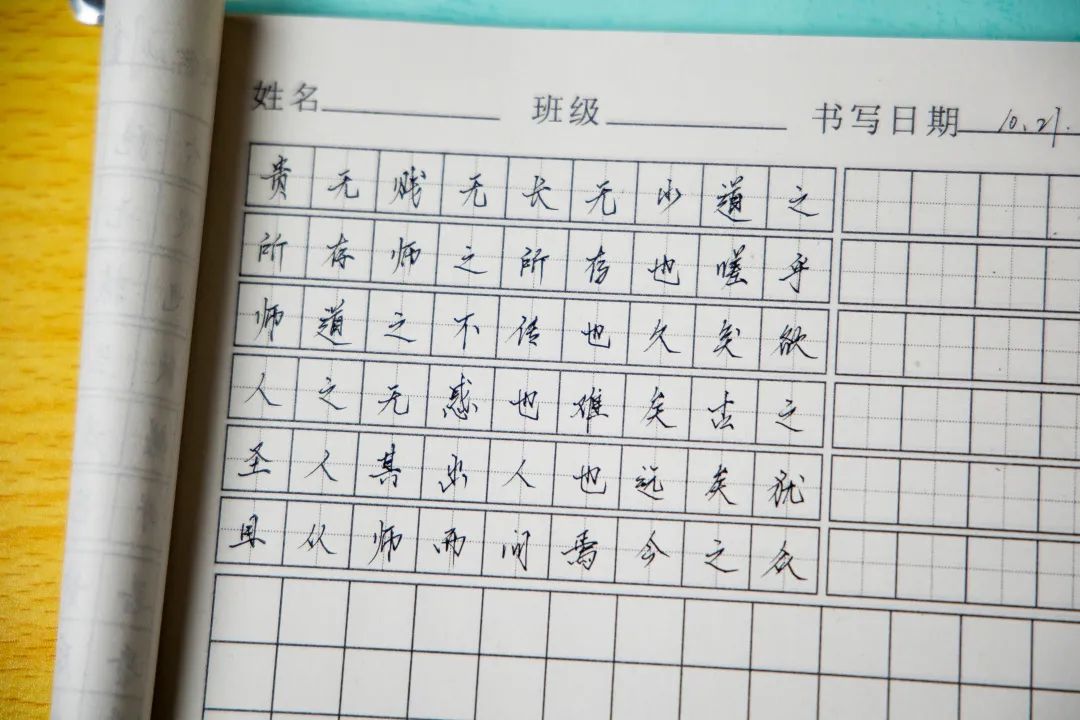 姓名 班级 书写日期 10.27.
贵无贱无长无少道之
所存师之所存也嗟乎
师道之不传也久矣欲
人之无惑也难矣古之
圣人其出人也远矣犹
且从师而问焉今之众